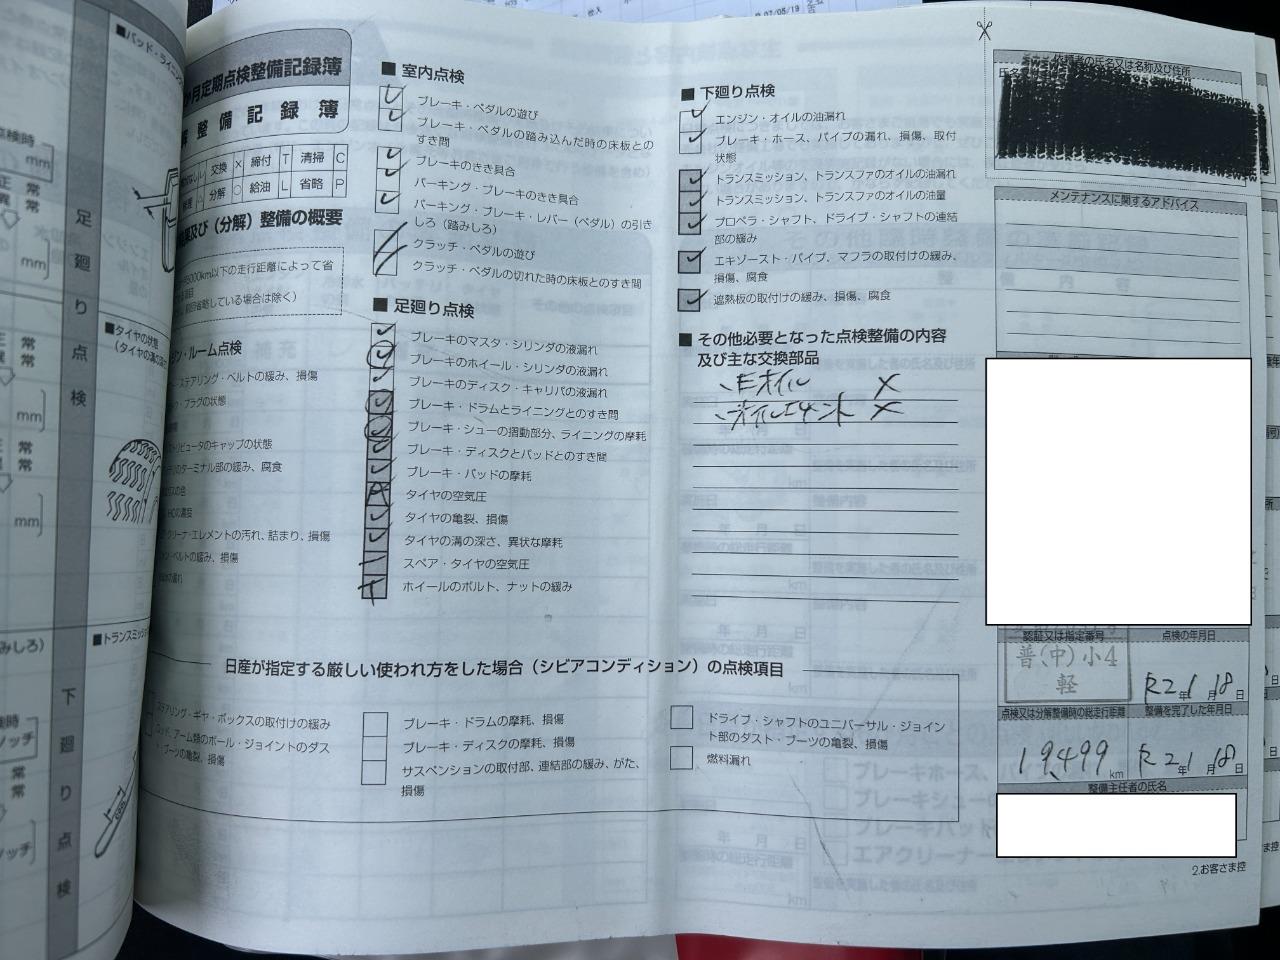 R 07/05/19
■パッド・ライニン
点検時
mm
正 常
異 常
mm
足廻り点検
■タイヤの状態
(タイヤの溝の深さ
常
常
mm
常
常
mm
みしろ)
■トランスミッシ
下廻り点検
検時
ッチ
常
常
ッチ
月定期点検整備記録簿
整備記録簿
交換 × 締付 T 清掃 C
分解 ○ 給油 L 省略 P
及び(分解)整備の概要
5000km以下の走行距離によって省
前回省略している場合は除く)
ン・ルーム点検
ステアリング・ベルトの緩み、損傷
ク・プラグの状態
トリビュータのキャップの状態
のターミナル部の緩み、腐食
ガスの色
HCの濃度
クリーナ・エレメントの汚れ、詰まり、損傷
ン・ベルトの緩み、損傷
の漏れ
■ 室内点検
ブレーキ・ペダルの遊び
ブレーキ・ペダルの踏み込んだ時の床板との
すき間
ブレーキのきき具合
パーキング・ブレーキのきき具合
パーキング・ブレーキ・レバー(ペダル)の引き
しろ(踏みしろ)
クラッチ・ペダルの遊び
クラッチ・ペダルの切れた時の床板とのすき間
■ 足廻り点検
ブレーキのマスタ・シリンダの液漏れ
ブレーキのホイール・シリンダの液漏れ
ブレーキのディスク・キャリパの液漏れ
ブレーキ・ドラムとライニングとのすき間
ブレーキ・シューの摺動部分、ライニングの摩耗
ブレーキ・ディスクとパッドとのすき間
ブレーキ・パッドの摩耗
タイヤの空気圧
タイヤの亀裂、損傷
タイヤの溝の深さ、異状な摩耗
スペア・タイヤの空気圧
ホイールのボルト、ナットの緩み
■ 下廻り点検
エンジン・オイルの油漏れ
ブレーキ・ホース、パイプの漏れ、損傷、取付
状態
トランスミッション、トランスファのオイルの油漏れ
トランスミッション、トランスファのオイルの油量
プロペラ・シャフト、ドライブ・シャフトの連結
部の緩み
エキゾースト・パイプ、マフラの取付けの緩み、
損傷、腐食
遮熱板の取付けの緩み、損傷、腐食
■ その他必要となった点検整備の内容
及び主な交換部品
、Eオイル ×
、オイルエレメント ×
依頼者の氏名又は名称及び住所
メンテナンスに関するアドバイス
認証又は指定番号 点検の年月日
普(中)小4
軽
R2年1月18日
点検又は分解整備時の総走行距離 整備を完了した年月日
19,499 km
R2年1月18日
整備主任者の氏名
2.お客さま控
日産が指定する厳しい使われ方をした場合(シビアコンディション)の点検項目
ステアリング・ギヤ・ボックスの取付けの緩み
ロッド、アーム類のボール・ジョイントのダス
ト・ブーツの亀裂、損傷
ブレーキ・ドラムの摩耗、損傷
ブレーキ・ディスクの摩耗、損傷
サスペンションの取付部、連結部の緩み、がた、
損傷
ドライブ・シャフトのユニバーサル・ジョイン
ト部のダスト・ブーツの亀裂、損傷
燃料漏れ